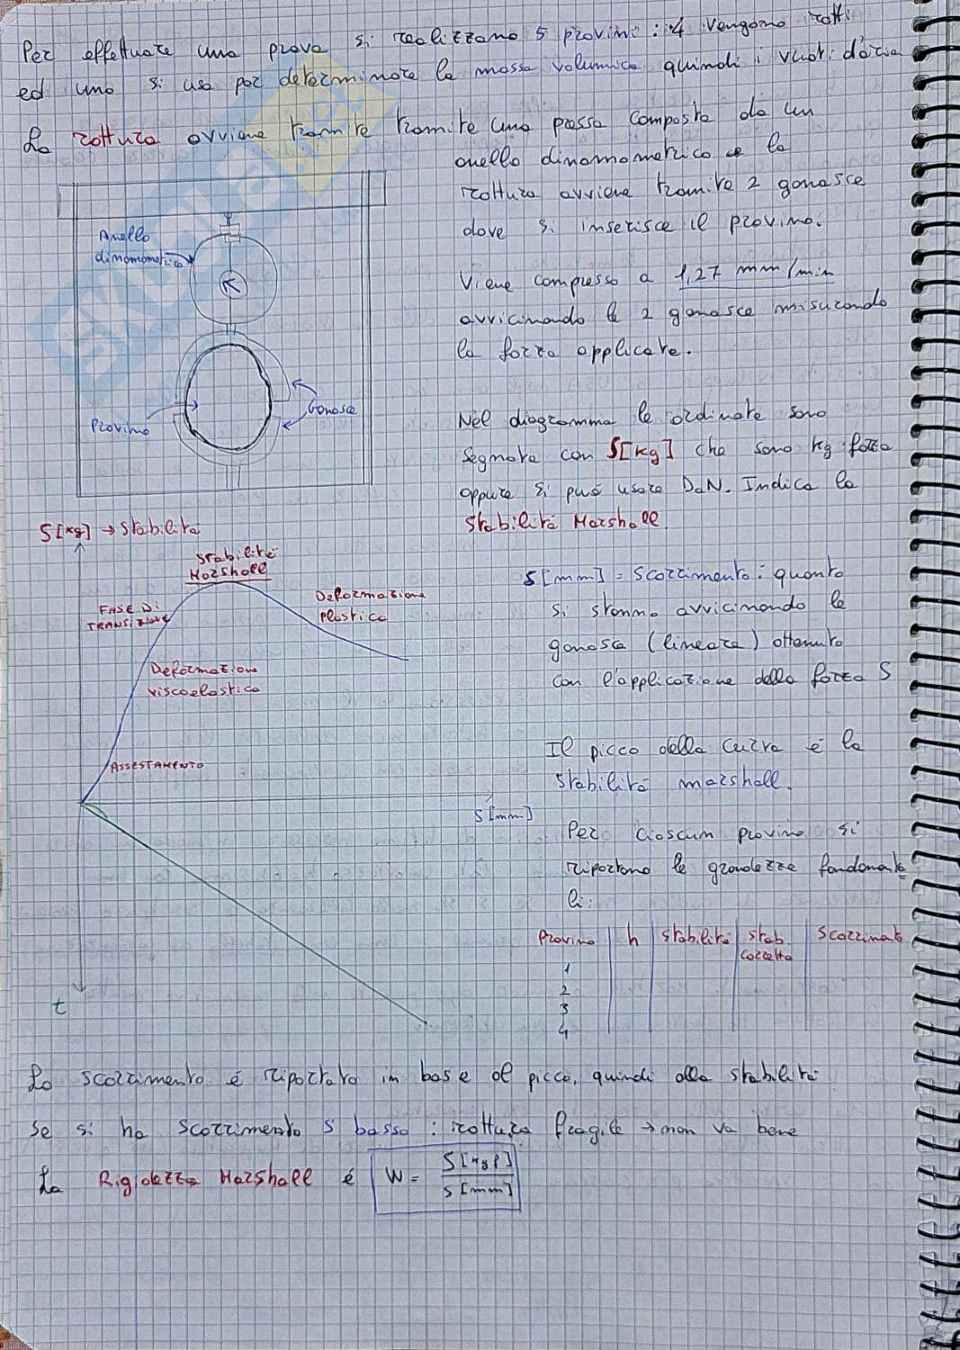 Per effettuare una prova si realizzano 5 provini: 4 vengono rotti
ed uno si usa per determinare la massa volumica quindi i vuoti d'aria
La rottura avviene tramite tramite una pressa composta da un
anello dinamometrico e la
rottura avviene tramite 2 ganasce
dove si inserisce il provino.
Viene compresso a 1,27 mm/min
avvicinando le 2 ganasce misurando
la forza applicata.
Anello
dinamometrico
Provino
Ganasce
SKUOLA.net
Nel diagramma le ordinate sono
segnate con S[kg] che sono kg forza
oppure si può usare DaN. Indica la
stabilità Marshall
S[kg] → Stabilità
Stabilità
Marshall
FASE DI
TRANSIZIONE
Deformazione
Plastica
Deformazione
viscoelastica
ASSESTAMENTO
s[mm]
t
s[mm] = scorrimento: quanto
si stanno avvicinando le
ganasce (lineare) ottenuto
con l'applicazione della forza S
Il picco della curva è la
stabilità marshall.
Per ciascun provino si
riportano le grandezze fondamenta
li:
Provino h stabilità stab corretta scorrimento
1
2
3
4
Lo scorrimento è riportato in base al picco, quindi alla stabilità
Se si ha scorrimento s basso: rottura fragile → non va bene
La Rigidezza Marshall è W = S[kgf] / s[mm]